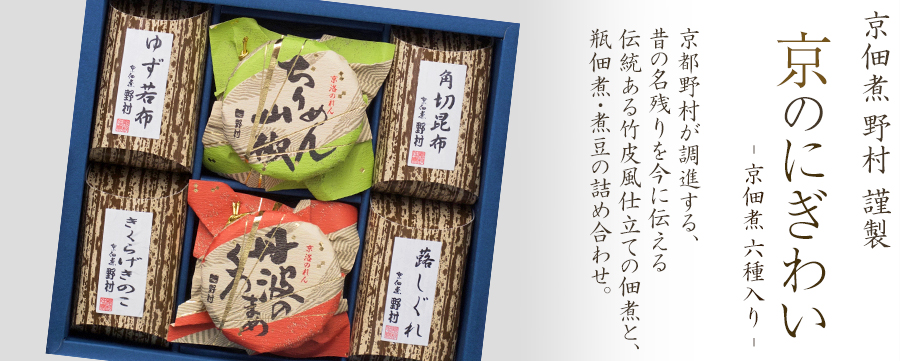 京佃煮 野村 謹製
京のにぎわい
－京佃煮 六種入り－
京都野村が調進する、
昔の名残りを今に伝える
伝統ある竹皮風仕立ての佃煮と、
瓶佃煮・煮豆の詰め合わせ。
角切昆布
京佃煮 野村
京洛のれん
ちりめん
山椒
野村
ゆず若布
京佃煮 野村
蕗しぐれ
京佃煮 野村
京洛のれん
丹波の
くろまめ
野村
きくらげきのこ
京佃煮 野村